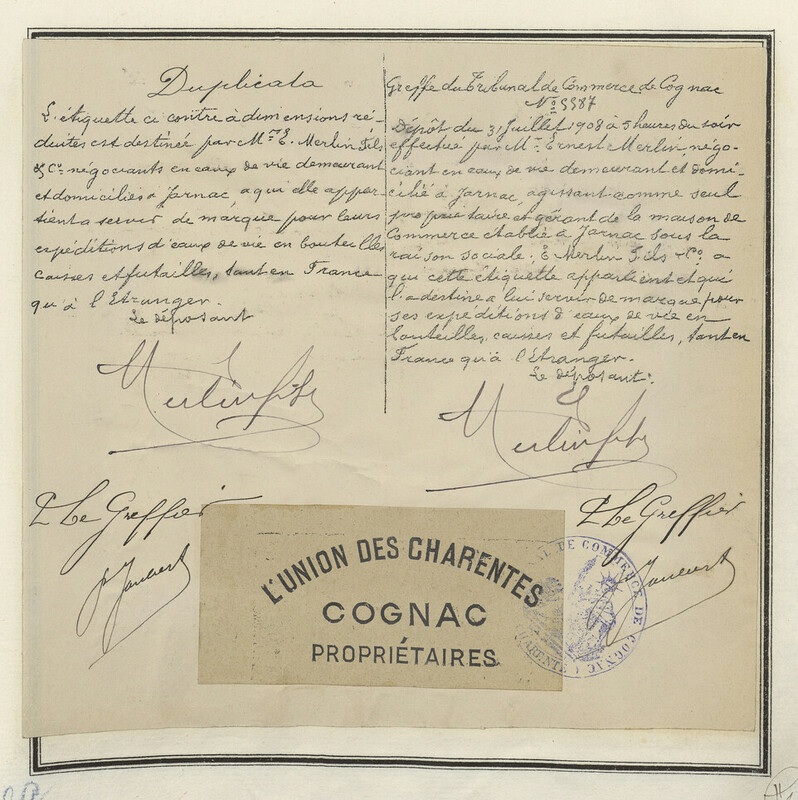 Duplicata
L'étiquette ci contre à dimensions ré-
duites est destinée par Mrs E. Merlin Fils
& Cie négociants en eaux de vie demeurant
et domiciliés à Jarnac, a qui elle appar-
tient a servir de marque pour leurs
expéditions d'eaux de vie en bouteilles
caisses et futailles, tant en France
qu'à l'Etranger.
Le déposant
E Merlin fils
P Le Greffier
Greffe du Tribunal de Commerce de Cognac
No 3387
Dépôt du 31 Juillet 1908 à 5 heures du soir
effectué par Mr Ernest Merlin, négo-
ciant en eaux de vie demeurant et domi-
cilié à Jarnac, agissant comme seul
propriétaire et gérant de la maison de
Commerce établie à Jarnac sous la
raison sociale, E Merlin Fils & Co. a
qui cette étiquette appartient et qui
l'a destine a lui servir de marque pour
ses expéditions d'eaux de vie en
bouteilles, caisses et futailles, tant en
France qu'à l'étranger.
Le déposant.
E Merlin fils
P Le Greffier
L'UNION DES CHARENTES
COGNAC
PROPRIÉTAIRES
DE COMMERCE DE COGNAC
(CHARENTE)